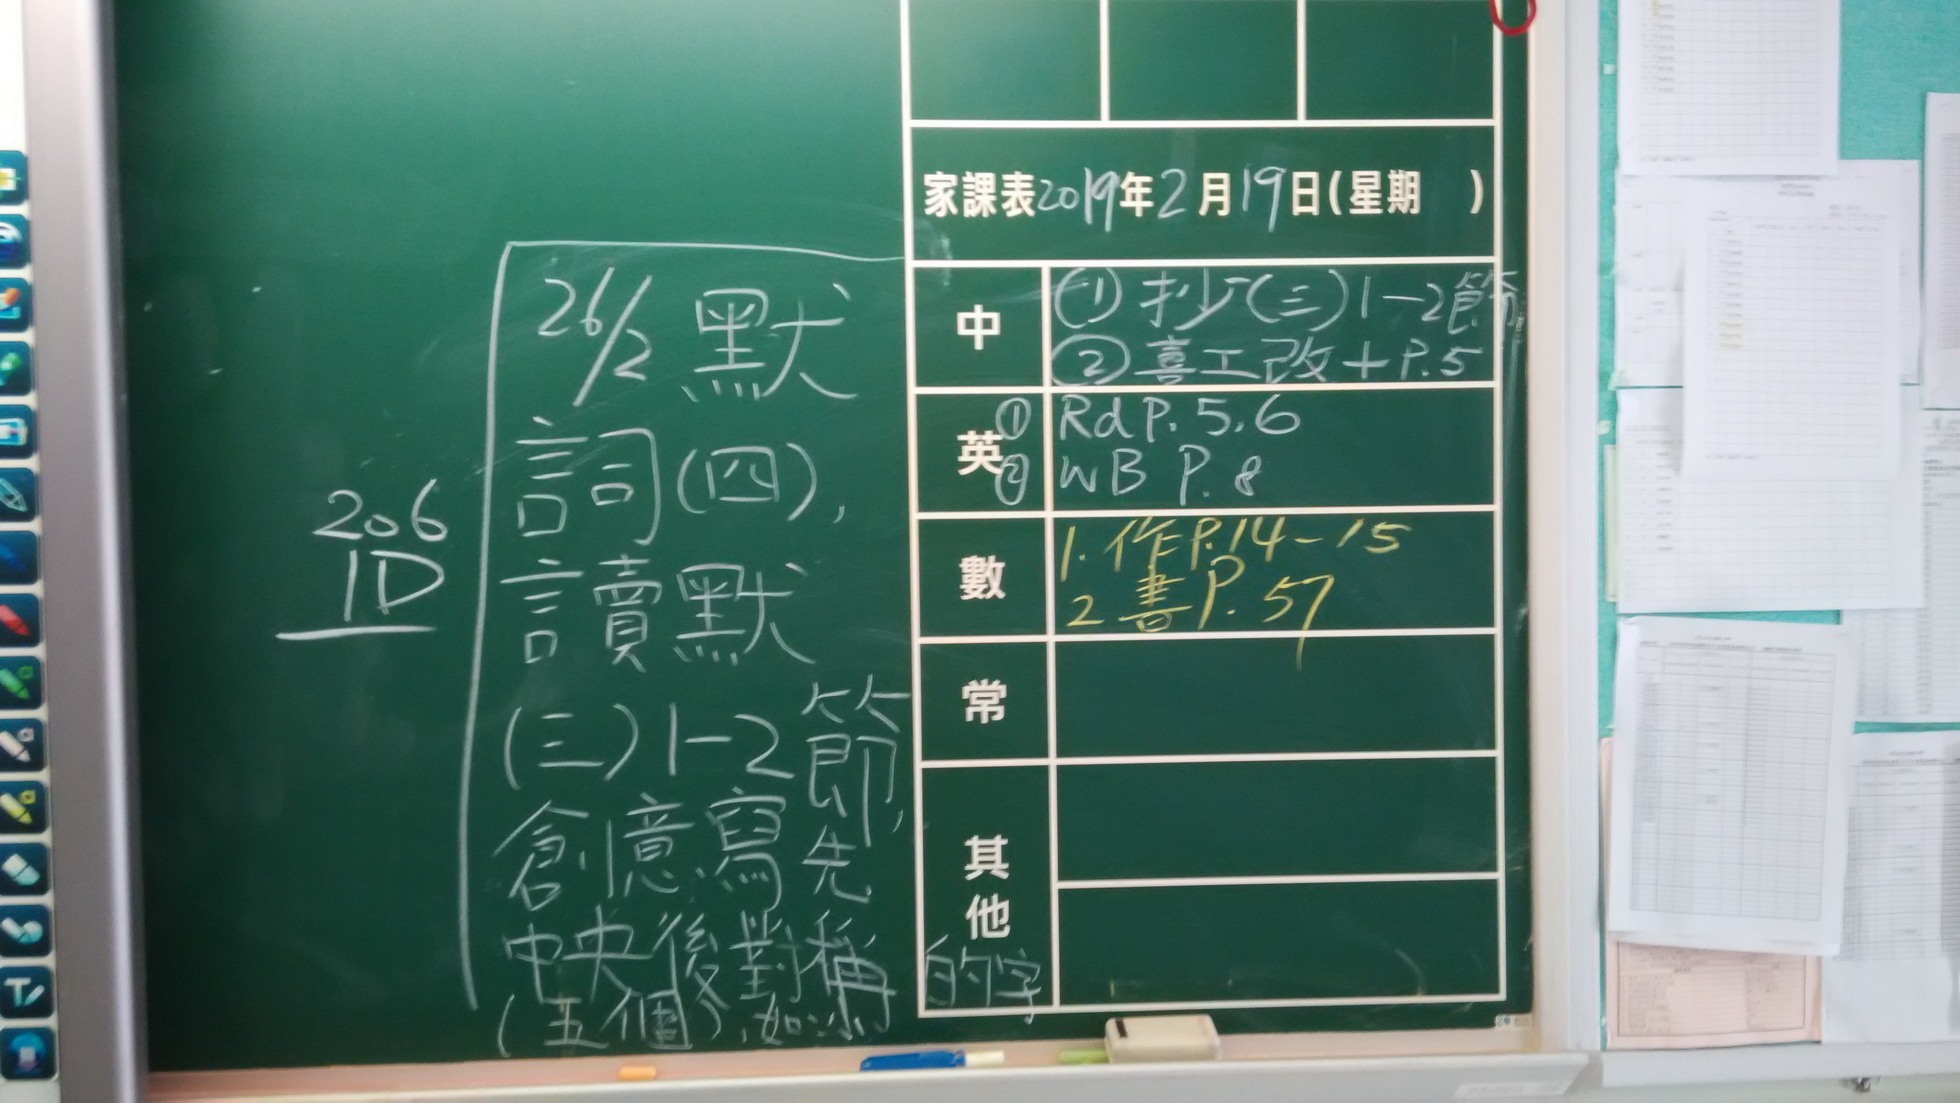 家課表2019年2月19日(星期 )
中
① 抄(三)1-2節
② 喜工改+P.5
英
① Rd P.5,6
② WB P.8
數
1. 作P.14-15
2 書P.57
常
其他
206
1D
26/2 默
詞(四),
讀默
(三)1-2節,
創意寫先
中央後對稱的字
(五個)如